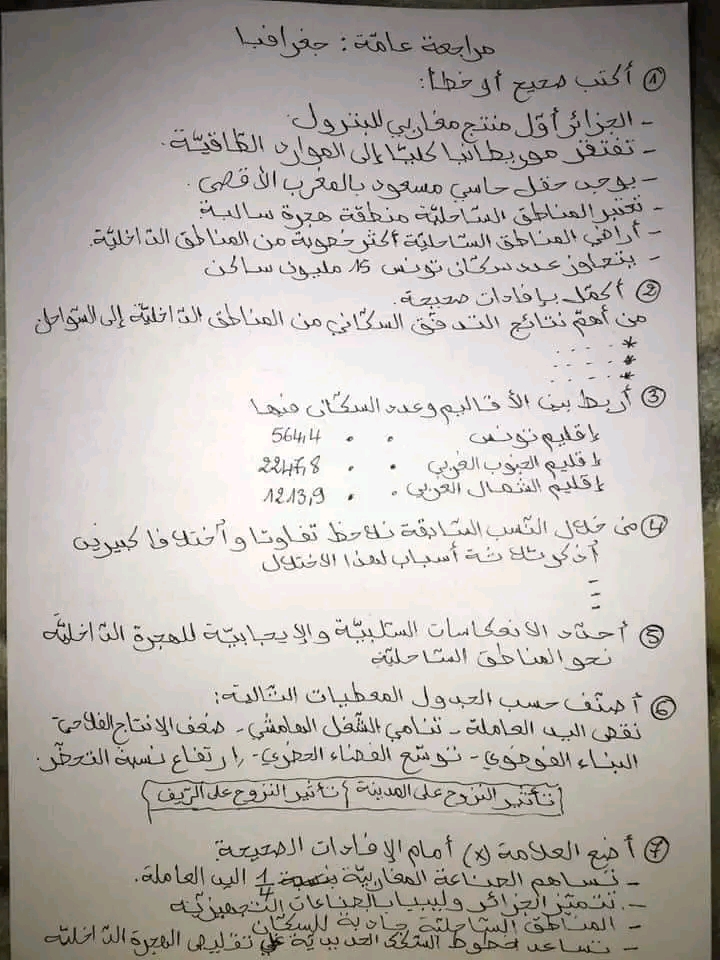 مراجعة عامّة : جغرافيا
① أكتب صحيح أو خطأ:
- الجزائر أوّل منتج مغاربي للبترول.
- تفتقر موريطانيا كليّا إلى الموارد الطّاقيّة.
- يوجد حقل حاسي مسعود بالمغرب الأقصى.
- تعتبر المناطق السّاحليّة منطقة هجرة سالبة
- أراضي المناطق السّاحليّة أكثر خصوبة من المناطق الدّاخليّة.
- يتجاوز عدد سكّان تونس 15 مليون ساكن
② أكمّل بإفادات صحيحة.
من أهمّ نتائج التدفّق السكّاني من المناطق الدّاخليّة إلى السّواحل
* - - - -
* - - - -
* - - - -
③ أربط بين الأقاليم وعدد السكّان فيها
إقليم تونس . . 564,4
إقليم الجنوب الغربي . . 2247,8
إقليم الشمال الغربي . . 1213,9
④ من خلال النّسب السّابقة نلاحظ تفاوتا وآختلافا كبيرين
أذكر ثلاثة أسباب لهذا الاختلال
-
-
-
⑤ أحدّد الانعكاسات السّلبيّة والإيجابيّة للهجرة الدّاخليّة
نحو المناطق السّاحليّة
⑥ أصنّف حسب الجدول المعطيات التّالية:
نقص اليد العاملة - تنامي الشّغل الهامشي - ضعف الإنتاج الفلاحي
البناء الفوضوي - توسّع الفضاء الحضري - ارتفاع نسبة التحضّر.
تأثير النزوح على المدينة | تأثير النزوح على الرّيف
⑦ أضع العلامة (x) أمام الإفادات الصّحيحة
- تساهم الصناعة المغاربيّة بنسبة 1/4 اليد العاملة.
- تتميّز الجزائر وليبيا بالصناعات التّجهيزيّة
- المناطق السّاحليّة جاذبة للسكّان
- تساعد خطوط السّكك الحديديّة على تقليص الهجرة الدّاخليّة